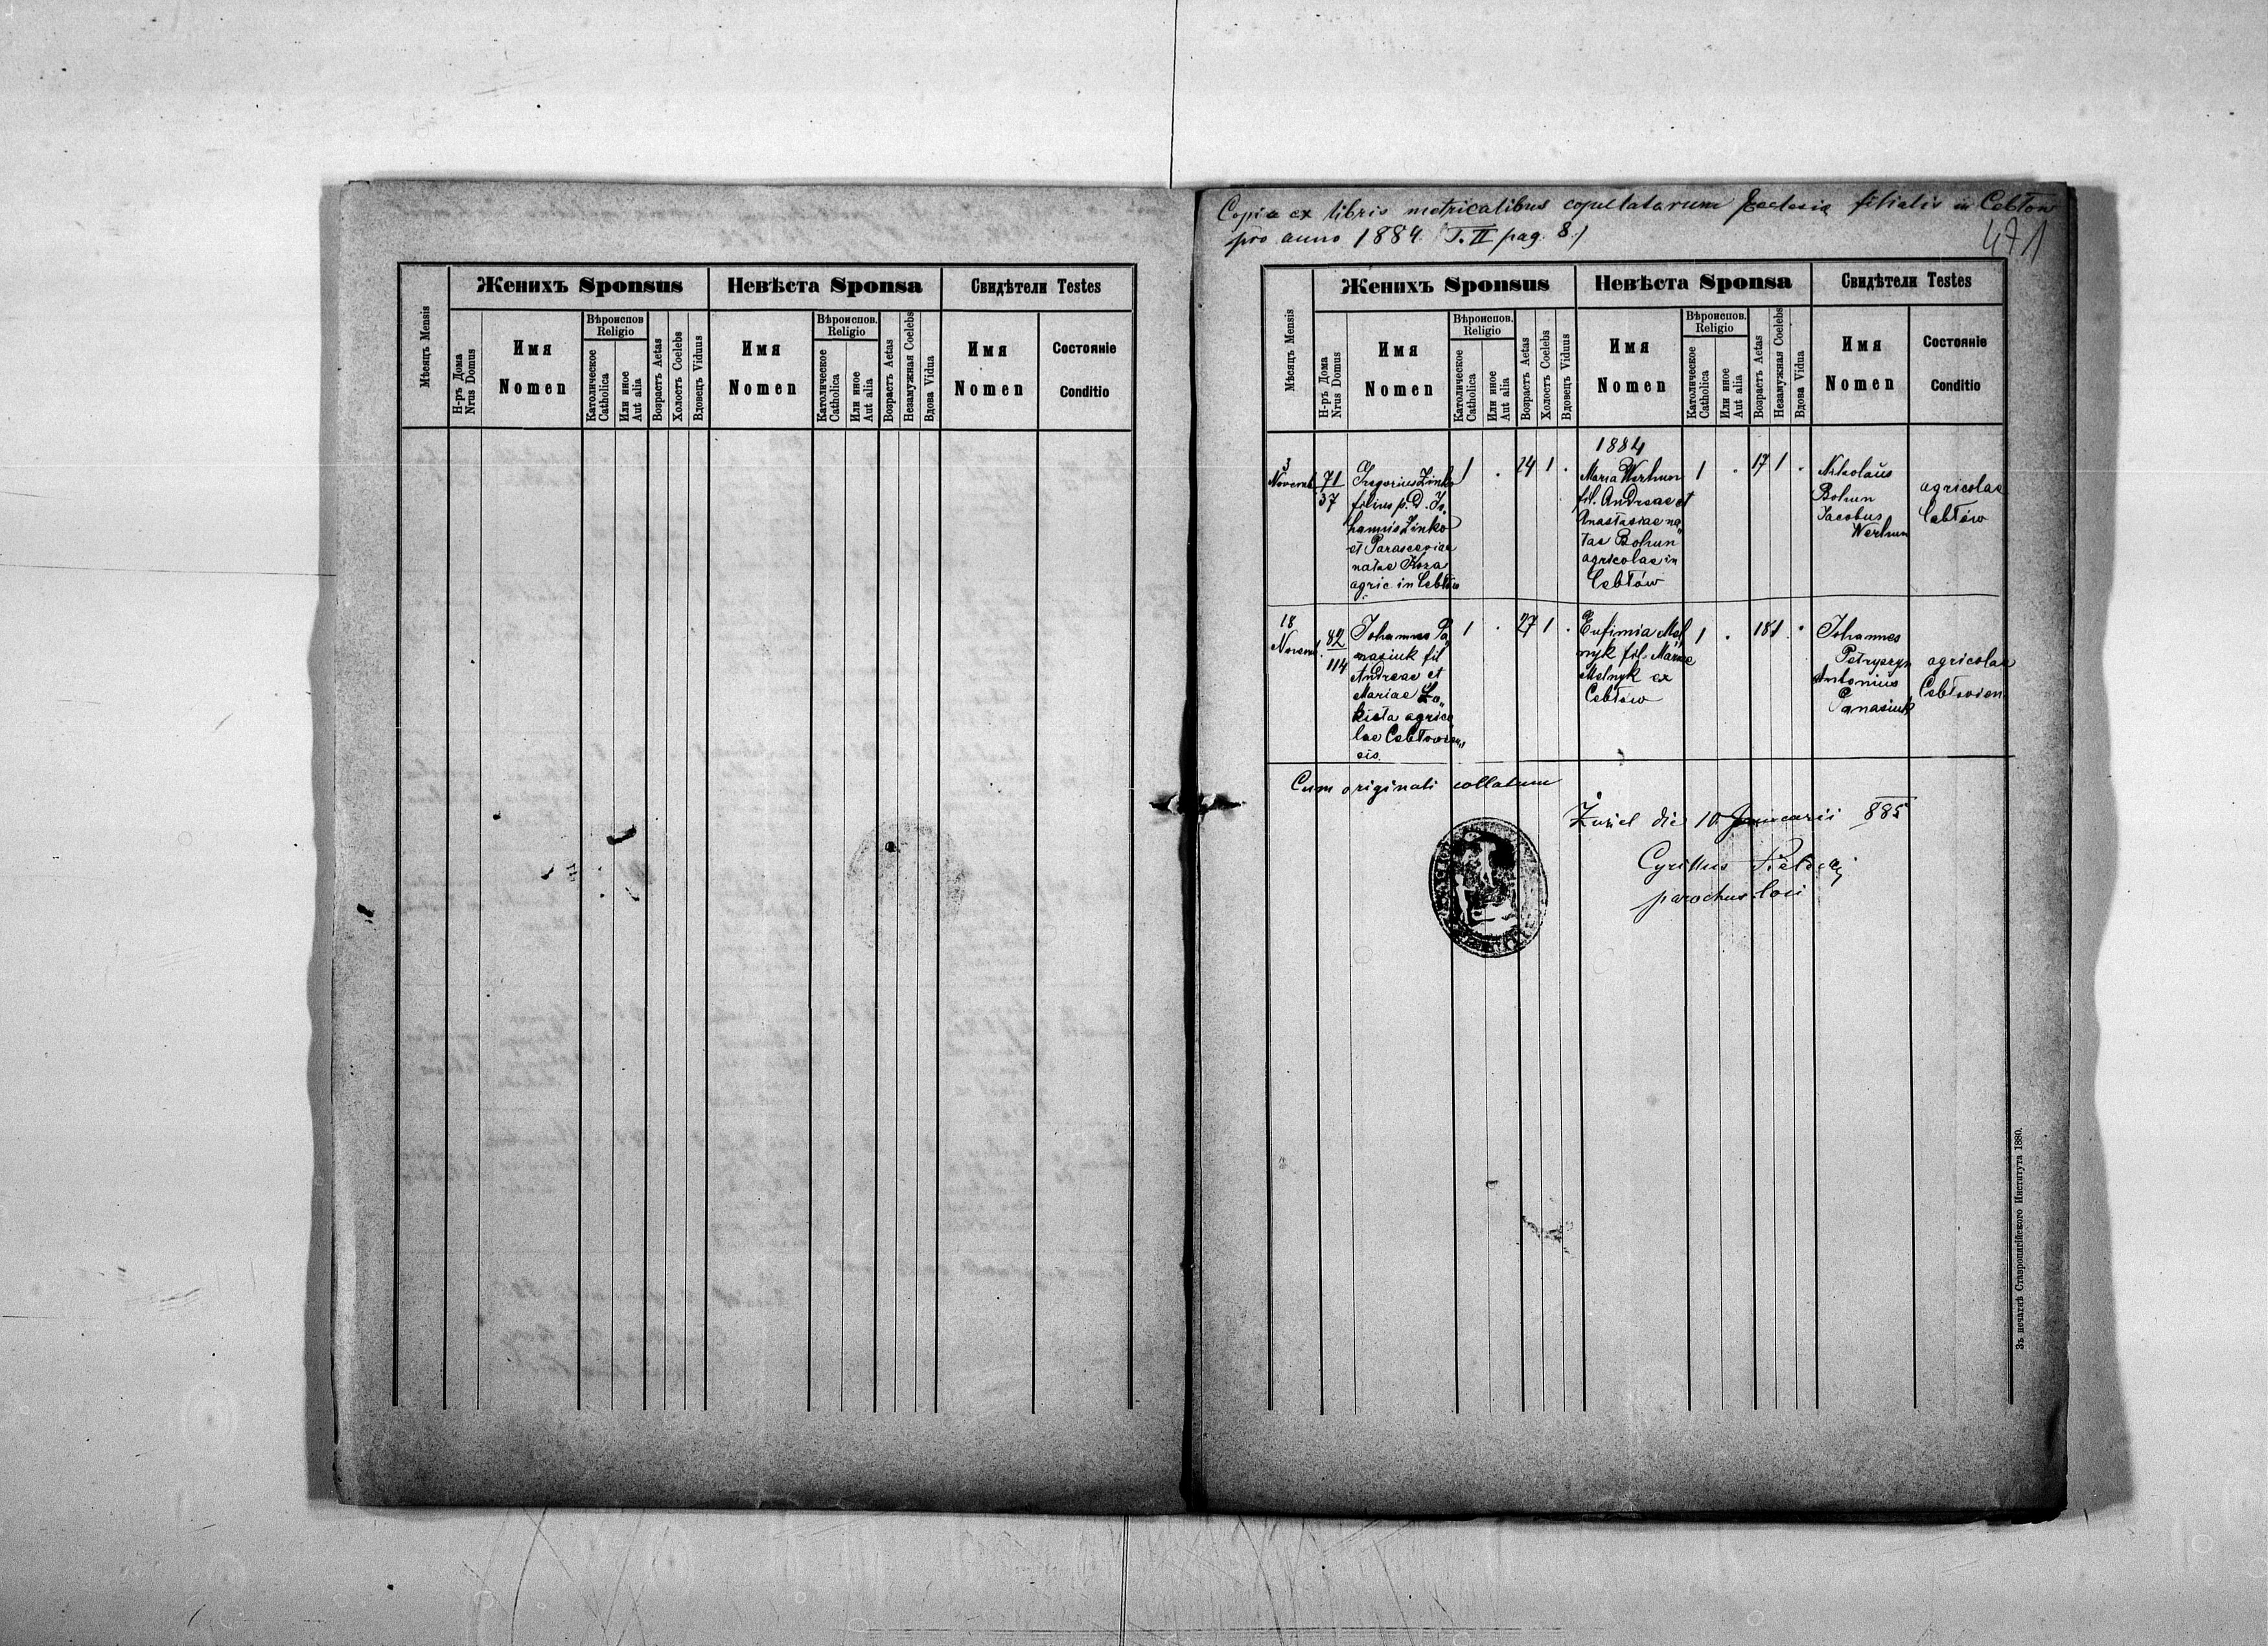 Мѣсяцъ Mensis
Женихъ Sponsus
Невѣста Sponsa
Свидѣтели Testes
Н-ръ Дома
Nrus Domus
Имя
Nomen
Вѣроиспов.
Religio
Католическое
Catholica
Или иное
Aut alia
Возрастъ Aetas
Холостъ Coelebs
Вдовецъ Viduus
Имя
Nomen
Вѣроиспов.
Religio
Католическое
Catholica
Или иное
Aut alia
Возрастъ Aetas
Незамужная Coelebs
Вдова Vidua
Имя
Nomen
Состояніе
Conditio
Copia ex libris metricalibus copullatarum Ecclesia filialis in Cebłow
pro anno 1884. (T. II pag. 8.)
471
Мѣсяцъ Mensis
Женихъ Sponsus
Невѣста Sponsa
Свидѣтели Testes
Н-ръ Дома
Nrus Domus
Имя
Nomen
Вѣроиспов.
Religio
Католическое
Catholica
Или иное
Aut alia
Возрастъ Aetas
Холостъ Coelebs
Вдовецъ Viduus
Имя
Nomen
Вѣроиспов.
Religio
Католическое
Catholica
Или иное
Aut alia
Возрастъ Aetas
Незамужная Coelebs
Вдова Vidua
Имя
Nomen
Состояніе
Conditio
1884
3
Novemb.
71
37
Gregorius Zinko
filius p. D. Jo,
hannis Zinko
et Parascepiae
natae Koza
agric in Cebłów
1 . 24 1 .
Maria Werhun
fil. Andreae et
Anastasiae na,
tae Bohun
agricolae in
Cebłów
1 . 17 1 .
Nikolaŭs
Bohun
Jacobus
Werhun
agricolae
Cebłów
18
Novemb.
82
114
Johannes Pa,
nasiuk fil
Andreae et
Mariae Lo,,
kieta agrico
lae Cebłowien,,
sis.
1 . 27 1 .
Eufimia Mel
nyk fil. Mariae
Melnyk ex
Cebłów
1 . 18 1 .
Johannes
Petryszyn
Antonius
Panasiuk
agricolae
Cebłovien
Cum originali collatum
Żużel die 10 Januarii 885
Cyrillus
parochus loci
Зъ печатнѣ Ставропигійского Института 1880.